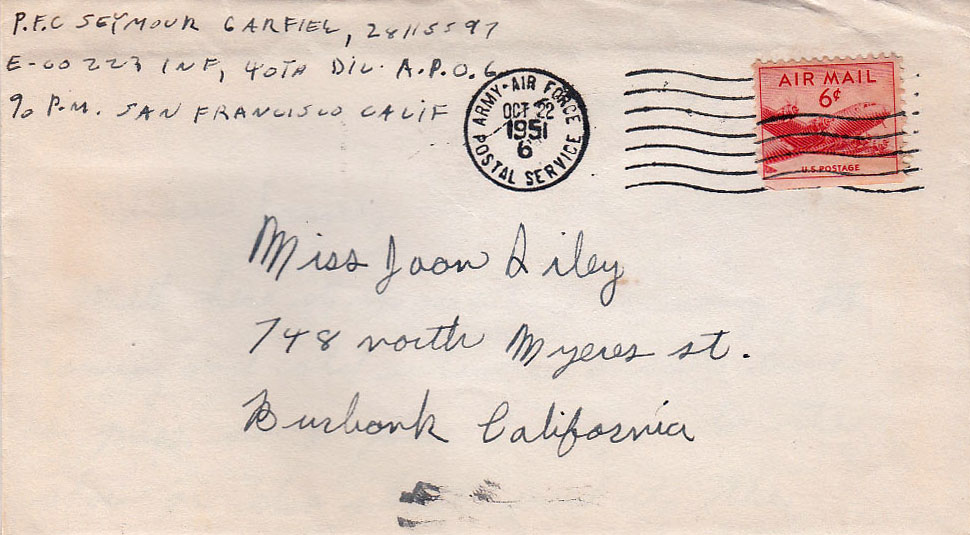 P.F.C SEYMOUR GARFIEL, 28115597
E-CO 223 INF, 40TH DIV. A.P.O. 6
% P.M. SAN FRANCISCO CALIF
ARMY-AIR FORCE
OCT 22
1951
6
POSTAL SERVICE
AIR MAIL
6¢
U.S. POSTAGE
Miss Joan Riley
748 north Myeres st.
Burbank California